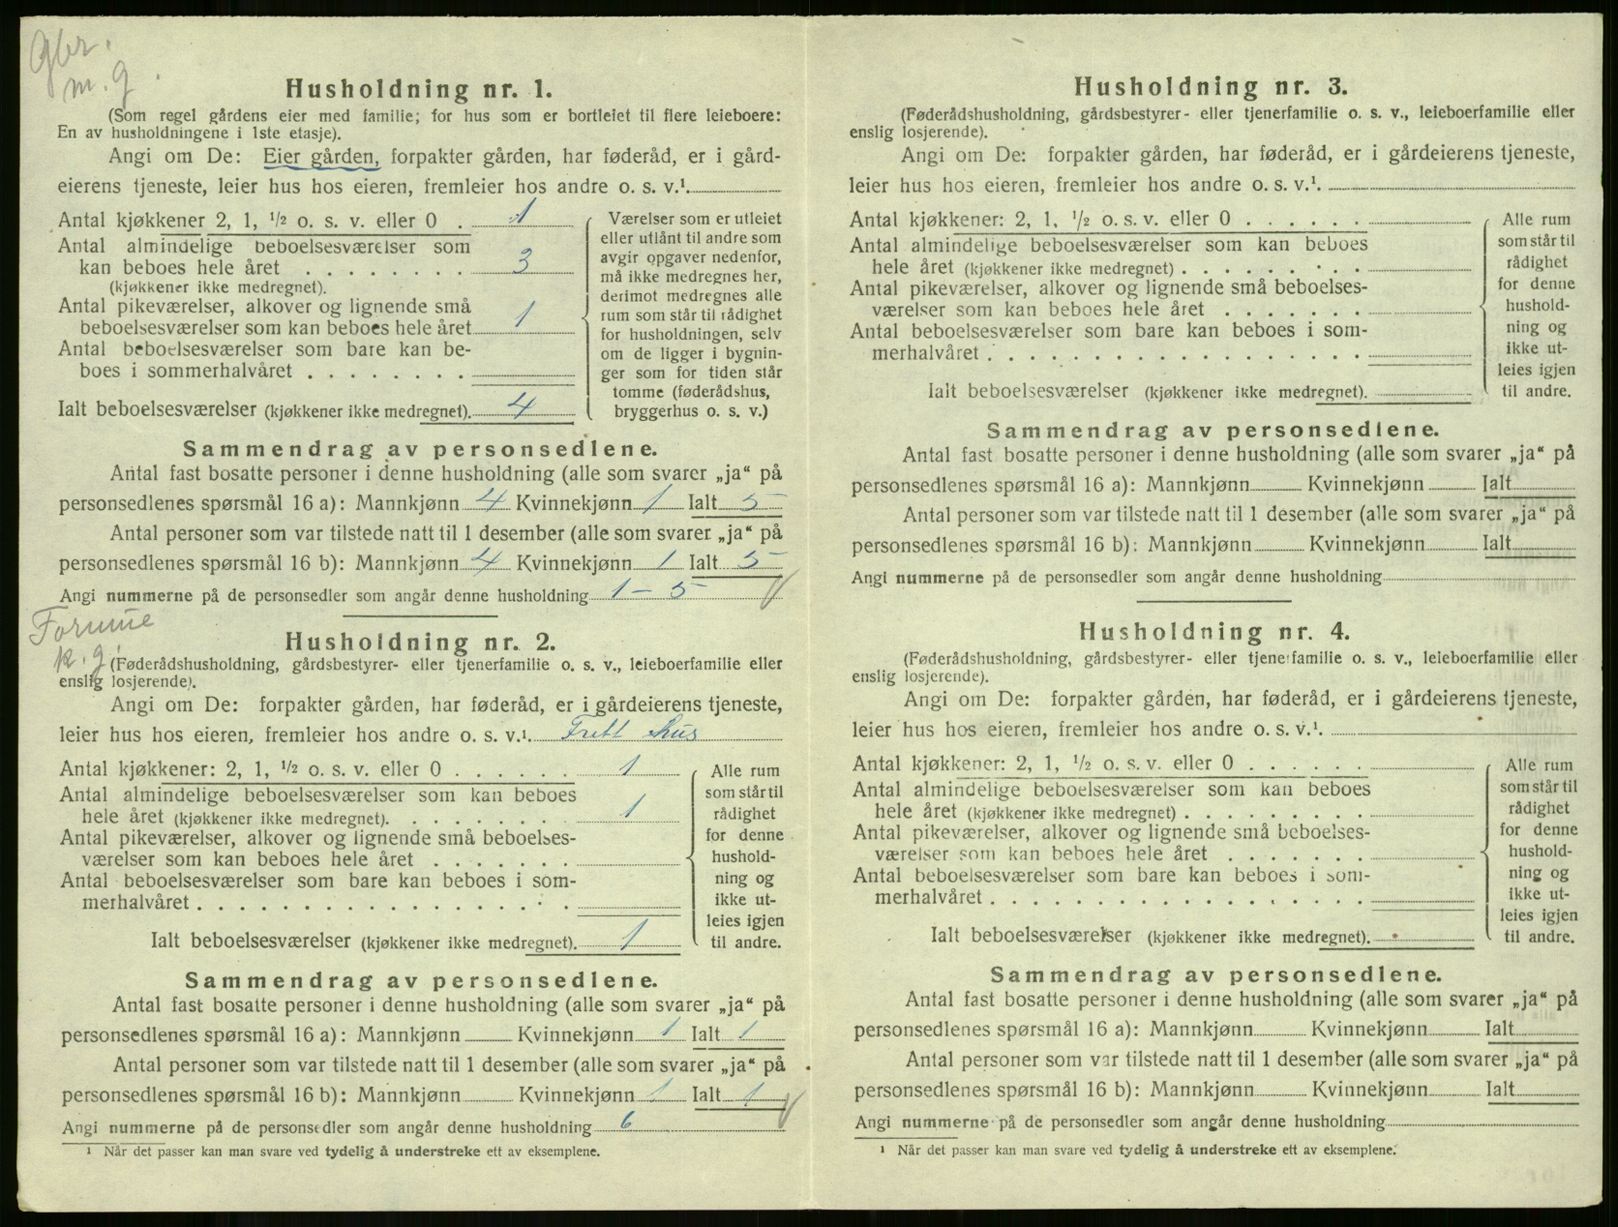 Gbr.
m. g
Husholdning nr. 1.
(Som regel gårdens eier med familie; for hus som er bortleiet til flere leieboere:
En av husholdningene i 1ste etasje).
Angi om De: Eier gården, forpakter gården, har føderåd, er i gård-
eierens tjeneste, leier hus hos eieren, fremleier hos andre o. s. v.¹
Antal kjøkkener 2, 1, ½ o. s. v. eller 0 . 1
Antal almindelige beboelsesværelser som
kan beboes hele året . . . . . . . . 3
(kjøkkener ikke medregnet).
Antal pikeværelser, alkover og lignende små
beboelsesværelser som kan beboes hele året 1
Antal beboelsesværelser som bare kan be-
boes i sommerhalvåret . . . . . . .
Ialt beboelsesværelser (kjøkkener ikke medregnet). 4
Værelser som er utleiet
eller utlånt til andre som
avgir opgaver nedenfor,
må ikke medregnes her,
derimot medregnes alle
rum som står til rådighet
for husholdningen, selv
om de ligger i bygnin-
ger som for tiden står
tomme (føderådshus,
bryggerhus o. s. v.)
Sammendrag av personsedlene.
Antal fast bosatte personer i denne husholdning (alle som svarer „ja“ på
personsedlenes spørsmål 16 a): Mannkjønn 4 Kvinnekjønn 1 Ialt 5
Antal personer som var tilstede natt til 1 desember (alle som svarer „ja“ på
personsedlenes spørsmål 16 b): Mannkjønn 4 Kvinnekjønn 1 Ialt 5
Angi nummerne på de personsedler som angår denne husholdning 1 – 5
k. g.
Husholdning nr. 2.
(Føderådshusholdning, gårdsbestyrer- eller tjenerfamilie o. s. v., leieboerfamilie eller
enslig losjerende).
Angi om De: forpakter gården, har føderåd, er i gårdeierens tjeneste,
leier hus hos eieren, fremleier hos andre o. s. v.¹ Fritt hus
Antal kjøkkener: 2, 1, ½ o. s. v. eller 0 . . . . . . 1
Antal almindelige beboelsesværelser som kan beboes
hele året (kjøkkener ikke medregnet). . . . . . . . . 1
Antal pikeværelser, alkover og lignende små beboelses-
værelser som kan beboes hele året . . . . . . .
Antal beboelsesværelser som bare kan beboes i som-
merhalvåret . . . . . . . . . . . . . . . . . .
Ialt beboelsesværelser (kjøkkener ikke medregnet). 1
Alle rum
som står til
rådighet
for denne
hushold-
ning og
ikke ut-
leies igjen
til andre.
Sammendrag av personsedlene.
Antal fast bosatte personer i denne husholdning (alle som svarer „ja“ på
personsedlenes spørsmål 16 a): Mannkjønn Kvinnekjønn 1 Ialt 1
Antal personer som var tilstede natt til 1 desember (alle som svarer „ja“ på
personsedlenes spørsmål 16 b): Mannkjønn Kvinnekjønn 1 Ialt 1
Angi nummerne på de personsedler som angår denne husholdning 6
¹ Når det passer kan man svare ved tydelig å understreke ett av eksemplene.
Husholdning nr. 3.
(Føderådshusholdning, gårdsbestyrer- eller tjenerfamilie o. s. v., leieboerfamilie eller
enslig losjerende).
Angi om De: forpakter gården, har føderåd, er i gårdeierens tjeneste,
leier hus hos eieren, fremleier hos andre o. s. v.¹.
Antal kjøkkener: 2, 1, ½ o. s. v. eller 0 . . . . . .
Antal almindelige beboelsesværelser som kan beboes
hele året (kjøkkener ikke medregnet) . . . . . . . . .
Antal pikeværelser, alkover og lignende små beboelses-
værelser som kan beboes hele året . . . . . . .
Antal beboelsesværelser som bare kan beboes i som-
merhalvåret . . . . . . . . . . . . . . . . . .
Ialt beboelsesværelser (kjøkkener ikke medregnet).
Alle rum
som står til
rådighet
for denne
hushold-
ning og
ikke ut-
leies igjen
til andre.
Sammendrag av personsedlene.
Antal fast bosatte personer i denne husholdning (alle som svarer „ja“ på
personsedlenes spørsmål 16 a): Mannkjønn Kvinnekjønn Ialt
Antal personer som var tilstede natt til 1 desember (alle som svarer „ja“ på
personsedlenes spørsmål 16 b): Mannkjønn Kvinnekjønn Ialt
Angi nummerne på de personsedler som angår denne husholdning
Husholdning nr. 4.
(Føderådshusholdning, gårdsbestyrer- eller tjenerfamilie o. s. v., leieboerfamilie eller
enslig losjerende).
Angi om De: forpakter gården, har føderåd, er i gårdeierens tjeneste,
leier hus hos eieren, fremleier hos andre o. s. v.¹.
Antal kjøkkener: 2, 1, ½ o. s. v. eller 0 . . . . . .
Antal almindelige beboelsesværelser som kan beboes
hele året (kjøkkener ikke medregnet) . . . . . . . . .
Antal pikeværelser, alkover og lignende små beboelses-
værelser som kan beboes hele året . . . . . . .
Antal beboelsesværelser som bare kan beboes i som-
merhalvåret . . . . . . . . . . . . . . . . . .
Ialt beboelsesværelser (kjøkkener ikke medregnet).
Alle rum
som står til
rådighet
for denne
hushold-
ning og
ikke ut-
leies igjen
til andre.
Sammendrag av personsedlene.
Antal fast bosatte personer i denne husholdning (alle som svarer „ja“ på
personsedlenes spørsmål 16 a): Mannkjønn Kvinnekjønn Ialt
Antal personer som var tilstede natt til 1 desember (alle som svarer „ja“ på
personsedlenes spørsmål 16 b): Mannkjønn Kvinnekjønn Ialt
Angi nummerne på de personsedler som angår denne husholdning
¹ Når det passer kan man svare ved tydelig å understreke ett av eksemplene.